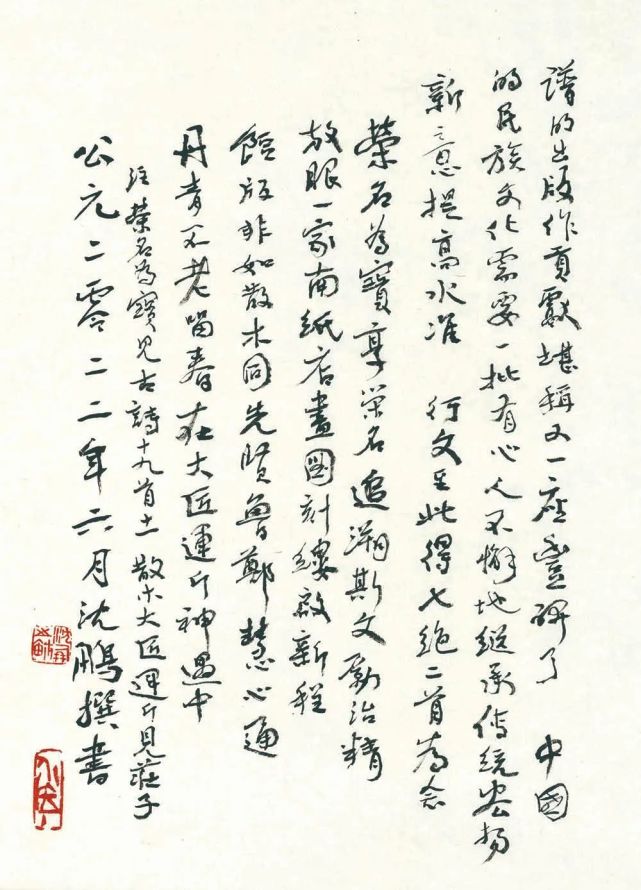 谱的出版作贡献堪称又一座丰碑了　中國
的民族文化需要一批有心人不懈地继承传统发扬
新意提高水准　行文至此得七绝二首为念
榮名為寶享榮名追溯斯文勵治精
放眼一家南纸店畫圖刻縷啟新程
餖版非如散木同先賢魯鄭慧心通
丹青不老留春在大匠運斤神遇中
注榮名為寶見古詩十九首十一散木大匠運斤見莊子
公元二零二二年六月沈鵬撰書